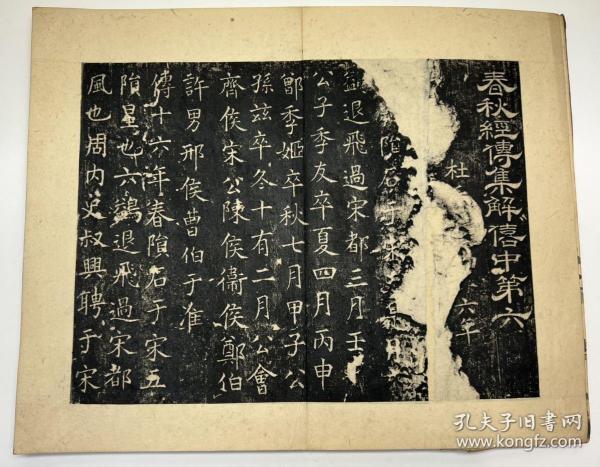 春秋經傳集解僖中第六
杜
六年
隕石于宋
鷁退飛過宋都三月壬
公子季友卒夏四月丙申
鄫季姬卒秋七月甲子公
孫兹卒冬十有二月公會
齊侯宋公陳侯衞侯鄭伯
許男邢侯曹伯于淮
傳十六年春隕石于宋五
隕星也六鷁退飛過宋都
風也周内史叔興聘于宋
孔夫子旧书网
www.kongfz.com